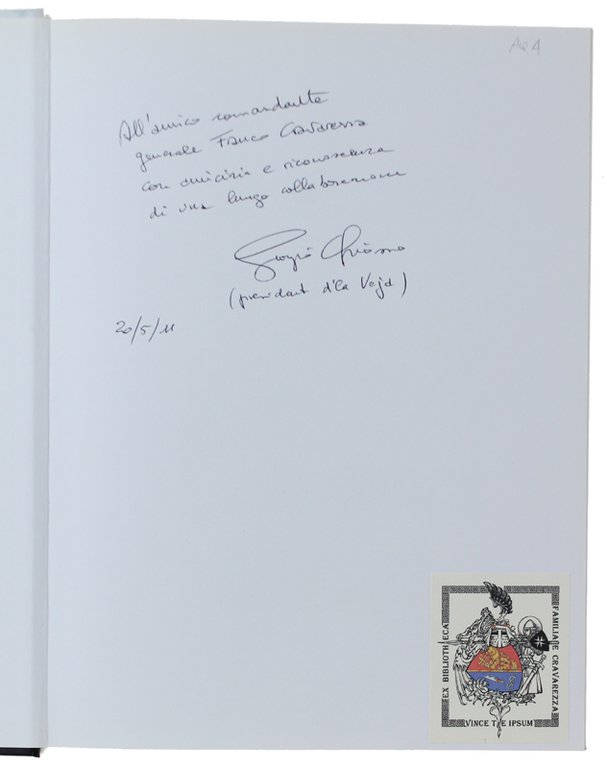 All'amico comandante
generale Franco Cravarezza
con amicizia e riconoscenza
di una lunga collaborazione
Giorgio
(president d'la Vejd)
20/5/11
EX BIBLIOTHECA
FAMILIAE CRAVAREZZA
VINCE TE IPSUM